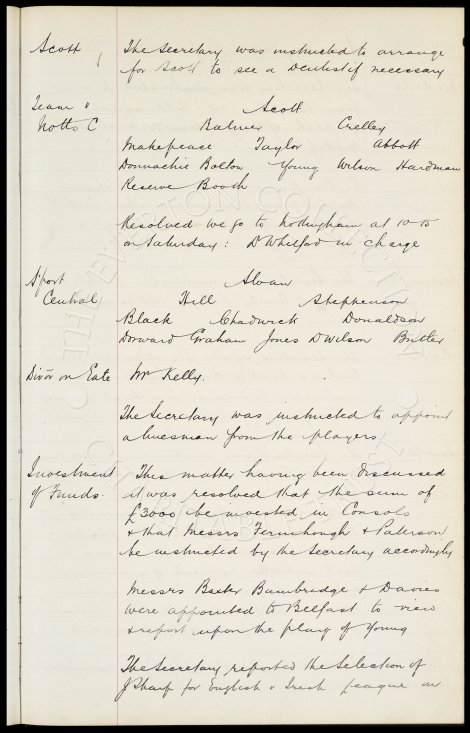 Scott The Secretary was instructed to arrange
for Scott to see a Dentist if necessary
Team v Scott
Notts C Balmer Crelley
Makepeace Taylor Abbott
Donnachie Bolton Young Wilson Hardman
Reserve Booth
Resolved we go to Nottingham at 10-15
on Saturday: D Whitford in charge
S'port Sloan
Central Hill Stephenson
Black Chadwick Donaldson
Dorward Graham Jones D Wilson Butler
Divn on Gate Mr Kelly.
The Secretary was instructed to appoint
a linesman from the players
Investment This matter having been discussed
of Funds. it was resolved that the sum of
£3000 be invested in Consols
& that Messrs Fernihough & Paterson
be instructed by the Secretary accordingly
Messrs Baxter Bainbridge & Davies
were appointed to Belfast to view
& report upon the play of Young
The Secretary reported the selection of
J Sharp for English v Irish League on
THE EVERTON COLLECTION